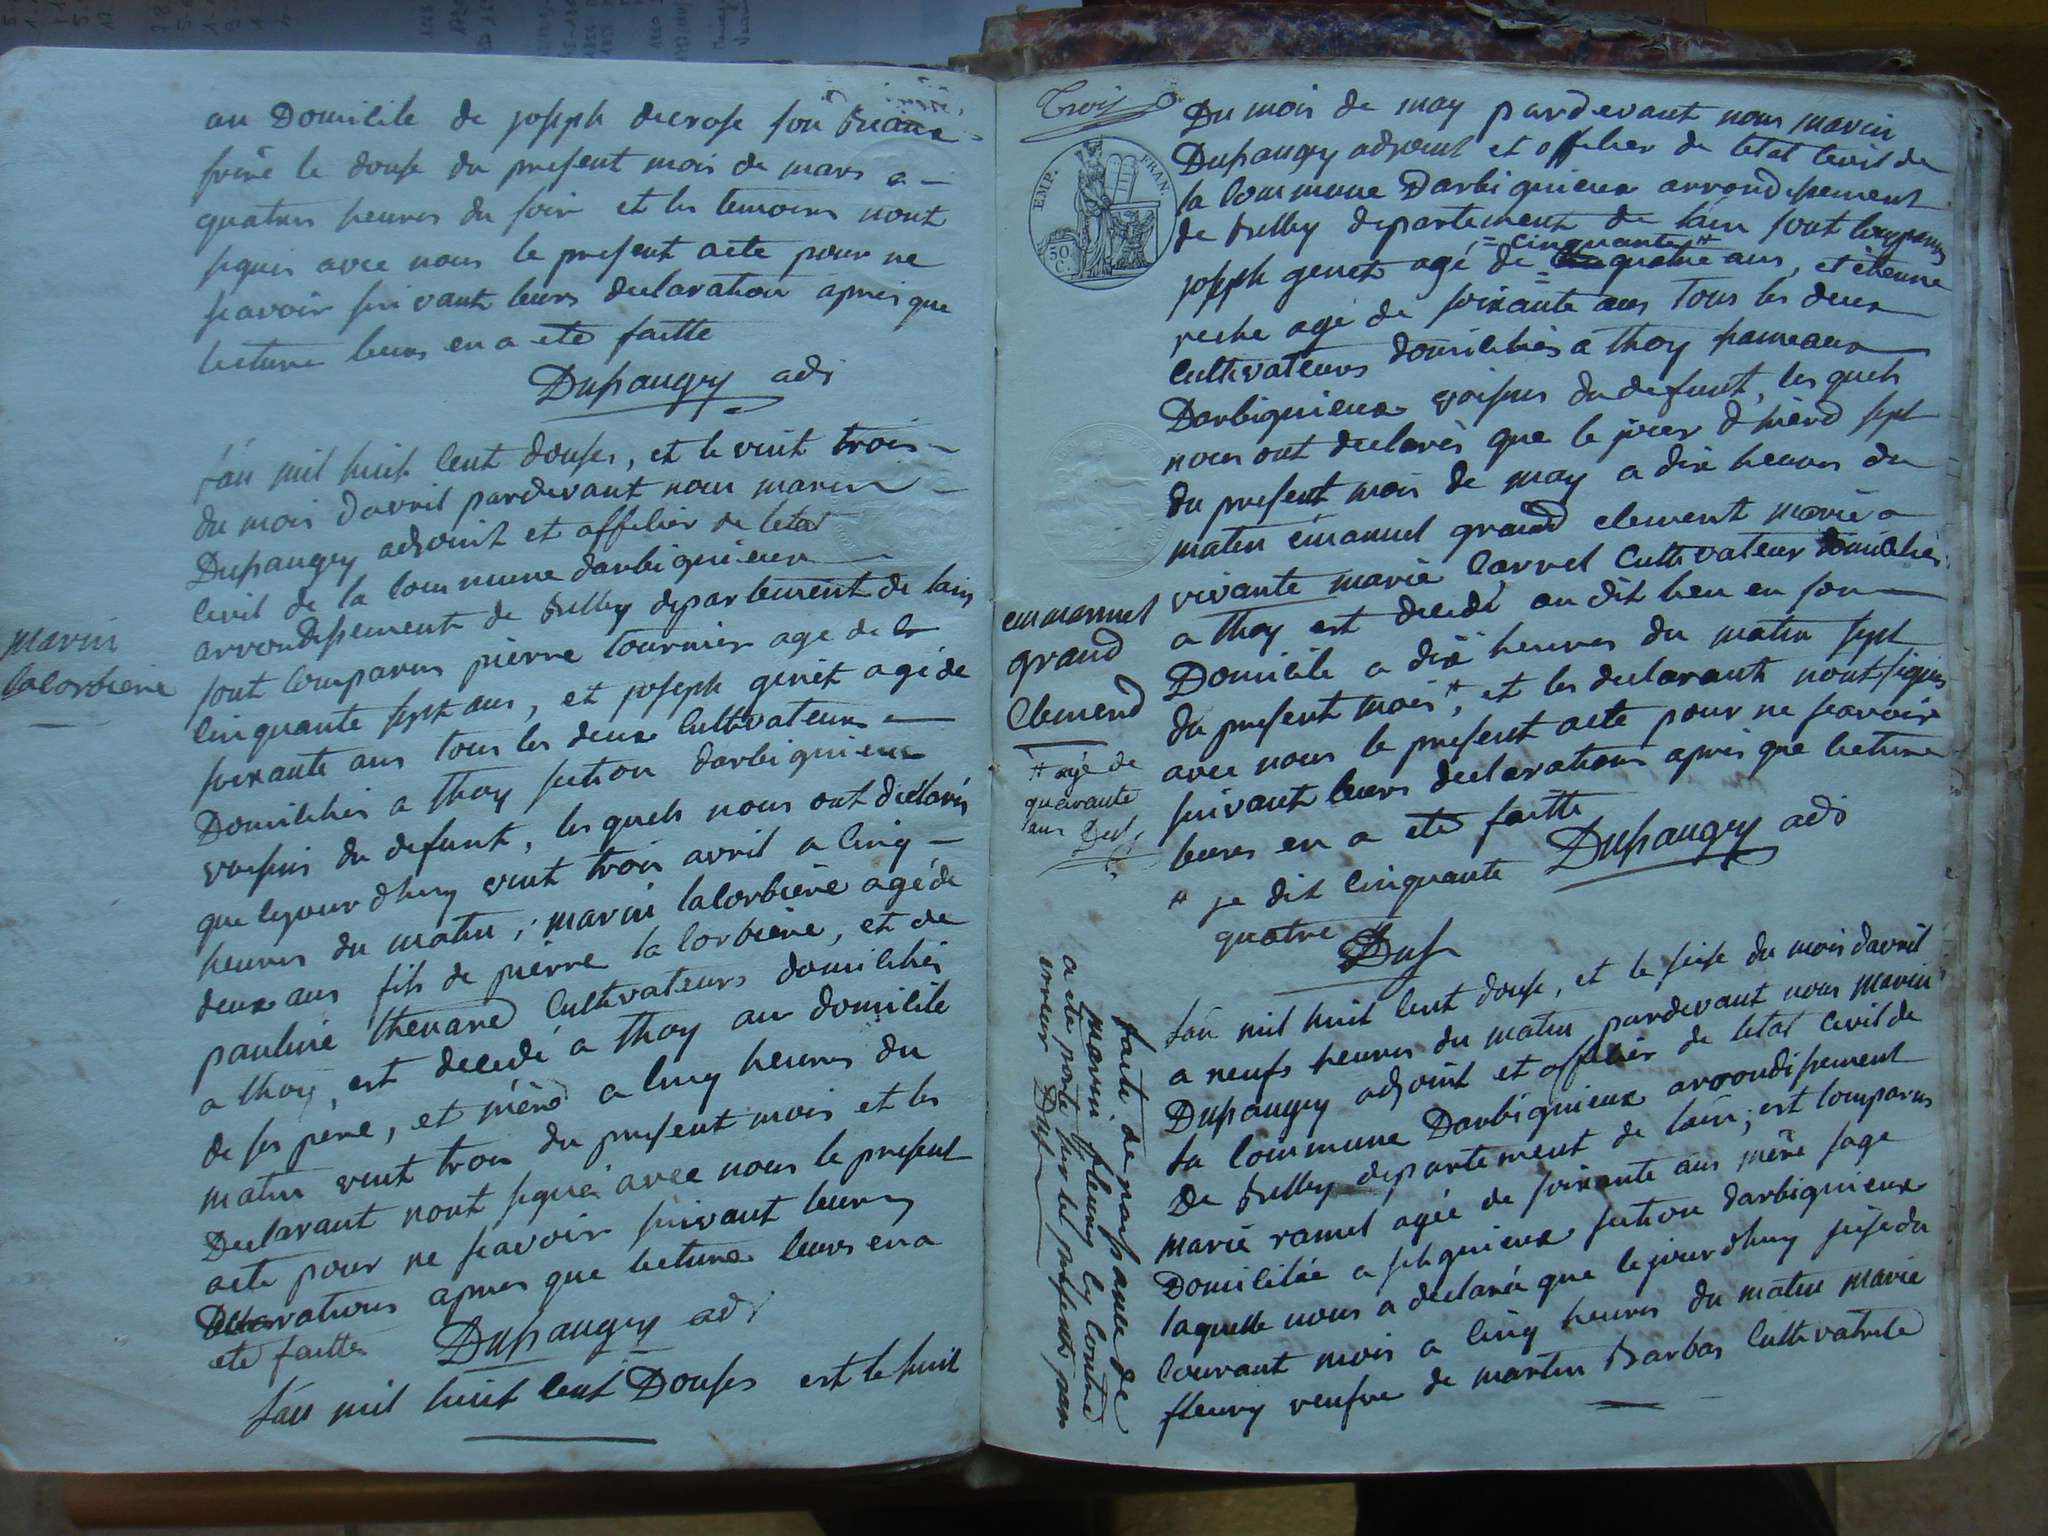 au Domicile de joseph decrose son Beau
frère le douse du present mois de mars a
quatres heures du soir et les temoins nont
signés avec nous le present acte pour ne
scavoir suivant leurs declaration après que
lecture leurs en a eté faitte
Dupaugey adj
marin
lacorbiere
lan mil huit cent douses, et le vint trois
du mois davril pardevant nous marin
Dupaugey adjoint et officier de letat
civil de la commune darbignieux
arrondissement de Belley departement de lain
sont comparus pierre tournier age de
cinquante sept ans, et joseph genet agé de
soixante ans tous les deux cultivateurs
Domiciliés a thoy section darbignieux
voisins du defunt, les quels nous ont déclarés
que lejourdhuy vint trois avril a cinq
heures du matin, marin lacorbière agé de
deux ans fils de pierre la corbière, et de
pauline thenard cultivateurs domiciliés
a thoy, est decedé a thoy au domicile
de ses père, et mère a cinq heures du
matin vint trois du present mois et les
Declarant nont signé avec nous le present
acte pour ne scavoir suivant leurs
Declarations apres que lecture leurs en a
eté faitte Dupaugey adj
lan mil huit cent Douses est le huit
trois
EMP. FRAN.
50 C.
Du mois de may pardevant nous marin
Dupaugey adjoint et officier de letat civil de
la commune Darbignieux arrondissement
de Belley departement de lain sont comparus
= cinquante #
joseph genet agé de quatre ans, et etienne
reche agé de soixante ans Tous les deux
cultivateurs domiciliés a thoy hameaux
Darbignieux voisins du defunt, les quels
nous ont declarés que le jour d hierd sept
du present mois de may a dix heures du
matin émanuel grand clement marié a
vivante marie carrel cultivateur domiciliés
a thoy est decedé au dit lieu en son
Domicile a dix heures du matin sept
du present mois #, et les declarants nont signés
avec nous le present acte pour ne scavoir
suivant leurs declarations après que lecture
leurs en a eté faitte Dupaugey adj
# je dit cinquante
quatre Dup
emmanuel
grand
Clemend
# agé de
quarante
ans Dup
lan mil huit cent douse, et le seise du mois davril
a neufs heures du matin pardevant nous marin
Dupaugey adjoint et officier de letat civil de
la commune Darbignieux arrondissement
De Belley departement de lain, est comparus
marie ramel agée de soixante ans mère sage
Domiciliée a section darbignieux
laquelle nous a declarée que lejourdhuy seise du
courant mois a cinq heures du matin marie
fleury veufve de martin Barbas cultivatrice
lacte de naissance de
marin fleury cy contre
a eté porté sur le present par
erreur Dup